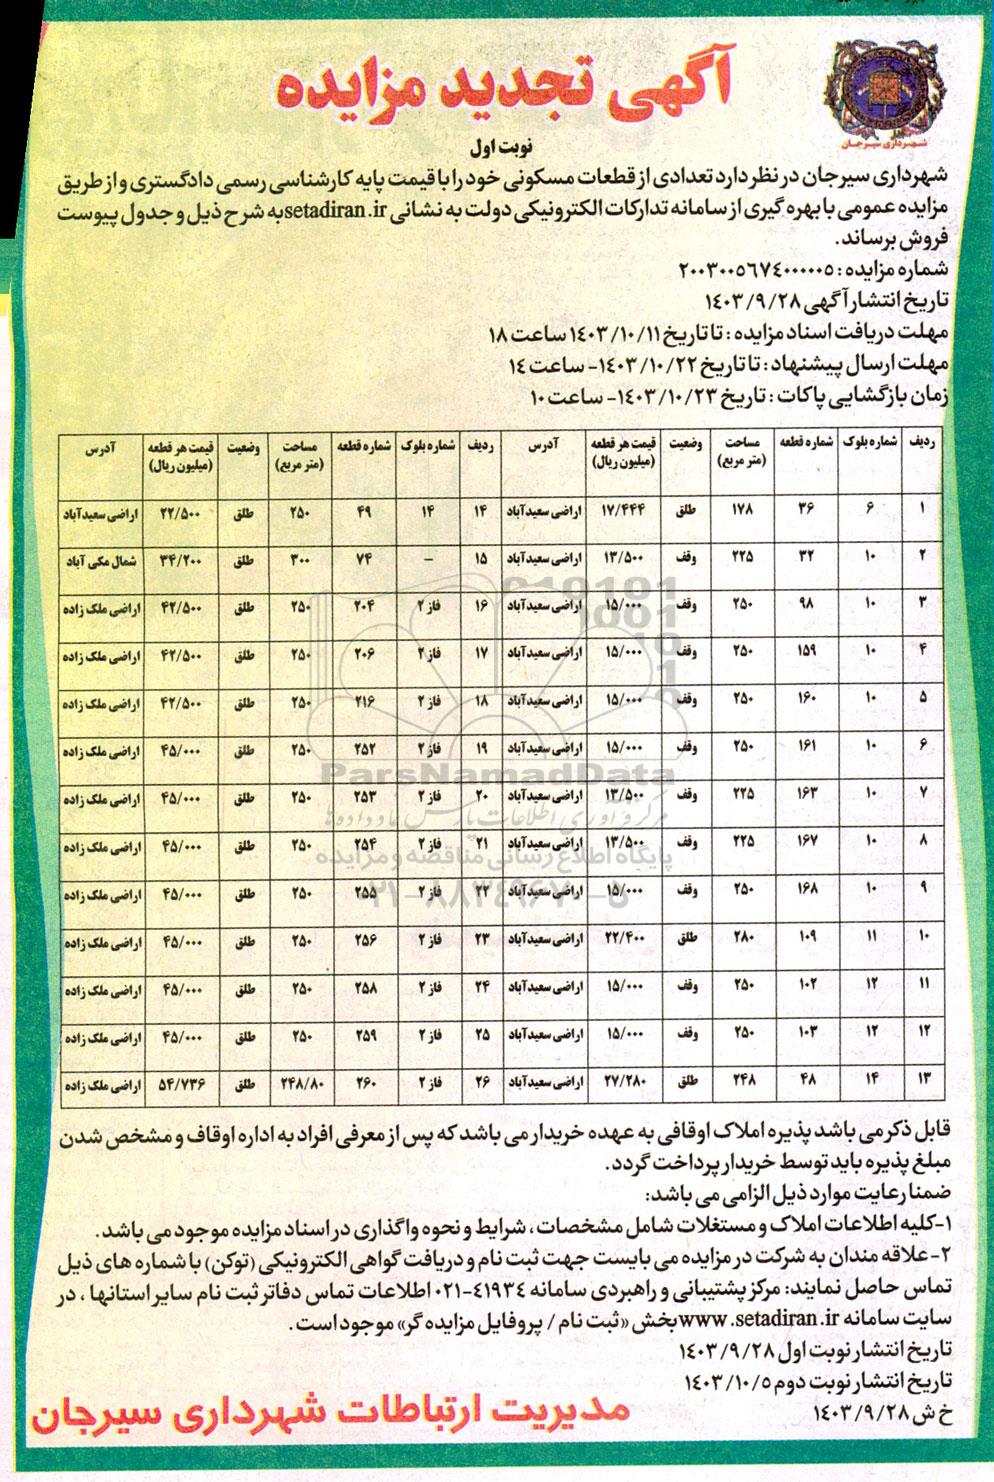 شهرداری سیرجان
آگهی تجدید مزایده
نوبت اول
شهرداری سیرجان در نظر دارد تعدادی از قطعات مسکونی خود را با قیمت پایه کارشناسی رسمی دادگستری و از طریق
مزایده عمومی با بهره گیری از سامانه تدارکات الکترونیکی دولت به نشانی setadiran.ir به شرح ذیل و جدول پیوست
فروش برساند.
شماره مزایده : ۲۰۰۳۰۰۵۶۷۴۰۰۰۰۰۵
تاریخ انتشار آگهی ۱۴۰۳/۹/۲۸
مهلت دریافت اسناد مزایده : تا تاریخ ۱۴۰۳/۱۰/۱۱ ساعت ۱۸
مهلت ارسال پیشنهاد : تا تاریخ ۱۴۰۳/۱۰/۲۲- ساعت ۱۴
زمان بازگشایی پاکات : تاریخ ۱۴۰۳/۱۰/۲۳- ساعت ۱۰
ردیف شماره بلوک شماره قطعه مساحت (متر مربع) وضعیت قیمت هر قطعه (میلیون ریال) آدرس ردیف شماره بلوک شماره قطعه مساحت (متر مربع) وضعیت قیمت هر قطعه (میلیون ریال) آدرس
۱ ۶ ۳۶ ۱۷۸ طلق ۱۷/۴۴۴ اراضی سعیدآباد ۱۴ ۱۴ ۴۹ ۲۵۰ طلق ۲۲/۵۰۰ اراضی سعیدآباد
۲ ۱۰ ۳۲ ۲۲۵ وقف ۱۳/۵۰۰ اراضی سعیدآباد ۱۵ – ۷۴ ۳۰۰ طلق ۳۴/۲۰۰ شمال مکی آباد
۳ ۱۰ ۹۸ ۲۵۰ وقف ۱۵/۰۰۰ اراضی سعیدآباد ۱۶ فاز ۲ ۲۰۴ ۲۵۰ طلق ۴۲/۵۰۰ اراضی ملک زاده
۴ ۱۰ ۱۵۹ ۲۵۰ وقف ۱۵/۰۰۰ اراضی سعیدآباد ۱۷ فاز ۲ ۲۰۶ ۲۵۰ طلق ۴۲/۵۰۰ اراضی ملک زاده
۵ ۱۰ ۱۶۰ ۲۵۰ وقف ۱۵/۰۰۰ اراضی سعیدآباد ۱۸ فاز ۲ ۲۱۶ ۲۵۰ طلق ۴۲/۵۰۰ اراضی ملک زاده
۶ ۱۰ ۱۶۱ ۲۵۰ وقف ۱۵/۰۰۰ اراضی سعیدآباد ۱۹ فاز ۲ ۲۵۲ ۲۵۰ طلق ۴۵/۰۰۰ اراضی ملک زاده
۷ ۱۰ ۱۶۳ ۲۲۵ وقف ۱۳/۵۰۰ اراضی سعیدآباد ۲۰ فاز ۲ ۲۵۳ ۲۵۰ طلق ۴۵/۰۰۰ اراضی ملک زاده
۸ ۱۰ ۱۶۷ ۲۲۵ وقف ۱۳/۵۰۰ اراضی سعیدآباد ۲۱ فاز ۲ ۲۵۴ ۲۵۰ طلق ۴۵/۰۰۰ اراضی ملک زاده
۹ ۱۰ ۱۶۸ ۲۵۰ وقف ۱۵/۰۰۰ اراضی سعیدآباد ۲۲ فاز ۲ ۲۵۵ ۲۵۰ طلق ۴۵/۰۰۰ اراضی ملک زاده
۱۰ ۱۱ ۱۰۹ ۲۸۰ طلق ۲۲/۴۰۰ اراضی سعیدآباد ۲۳ فاز ۲ ۲۵۶ ۲۵۰ طلق ۴۵/۰۰۰ اراضی ملک زاده
۱۱ ۱۲ ۱۰۲ ۲۵۰ وقف ۱۵/۰۰۰ اراضی سعیدآباد ۲۴ فاز ۲ ۲۵۸ ۲۵۰ طلق ۴۵/۰۰۰ اراضی ملک زاده
۱۲ ۱۲ ۱۰۳ ۲۵۰ وقف ۱۵/۰۰۰ اراضی سعیدآباد ۲۵ فاز ۲ ۲۵۹ ۲۵۰ طلق ۴۵/۰۰۰ اراضی ملک زاده
۱۳ ۱۴ ۴۸ ۲۴۸ طلق ۲۷/۲۸۰ اراضی سعیدآباد ۲۶ فاز ۲ ۲۶۰ ۲۴۸/۸۰ طلق ۵۴/۷۳۶ اراضی ملک زاده
ParsNamadData
مرکز فرآوری اطلاعات پارس نماد داده ها
پایگاه اطلاع رسانی مناقصه و مزایده
۰۲۱-۸۸۳۴۹۶۷۰-۵
قابل ذکر می باشد پذیره املاک اوقافی به عهده خریدار می باشد که پس از معرفی افراد به اداره اوقاف و مشخص شدن
مبلغ پذیره باید توسط خریدار پرداخت گردد.
ضمنا رعایت موارد ذیل الزامی می باشد:
۱-کلیه اطلاعات املاک و مستغلات شامل مشخصات، شرایط و نحوه واگذاری در اسناد مزایده موجود می باشد.
۲-علاقه مندان به شرکت در مزایده می بایست جهت ثبت نام و دریافت گواهی الکترونیکی (توکن) با شماره های ذیل
تماس حاصل نمایند: مرکز پشتیبانی و راهبردی سامانه ۴۱۹۳۴-۰۲۱ اطلاعات تماس دفاتر ثبت نام سایر استانها ، در
سایت سامانه www.setadiran.ir بخش «ثبت نام / پروفایل مزایده گر» موجود است.
تاریخ انتشار نوبت اول ۱۴۰۳/۹/۲۸
تاریخ انتشار نوبت دوم ۱۴۰۳/۱۰/۵
خ ش ۱۴۰۳/۹/۲۸
مدیریت ارتباطات شهرداری سیرجان